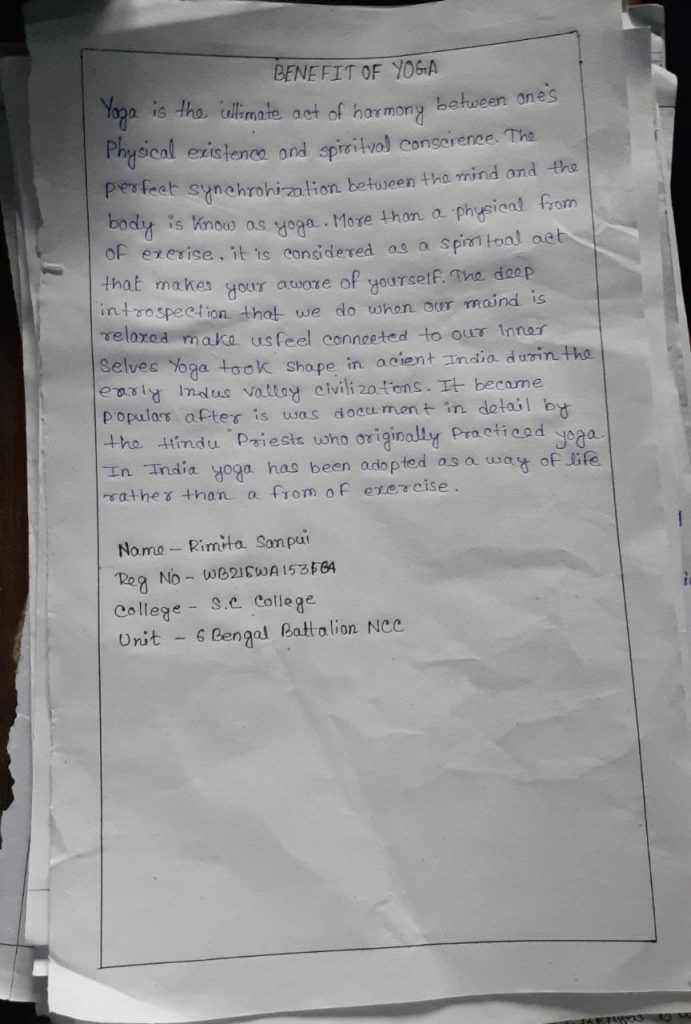 BENEFIT OF YOGA
Yoga is the ultimate act of harmony between one's
Physical existence and spiritval conscrience. The
perfect synchrohization between the mind and the
body is Know as yoga. More than a physical from
of exerise, it is considered as a spiritoal act
that makes your aware of yourself. The deep
introspection that we do when our maind is
relaxed make usfeel connected to our inner
selves Yoga took shape in acient India durin the
early Indus valley civilizations. It became
popular after is was document in detail by
the Hindu Priests who originally Practiced yoga.
In India yoga has been adopted as a way of life
rather than a from of exercise.
Name - Rimita Sanpui
Reg No -
College - S.C College
Unit - 6 Bengal Battalion NCC